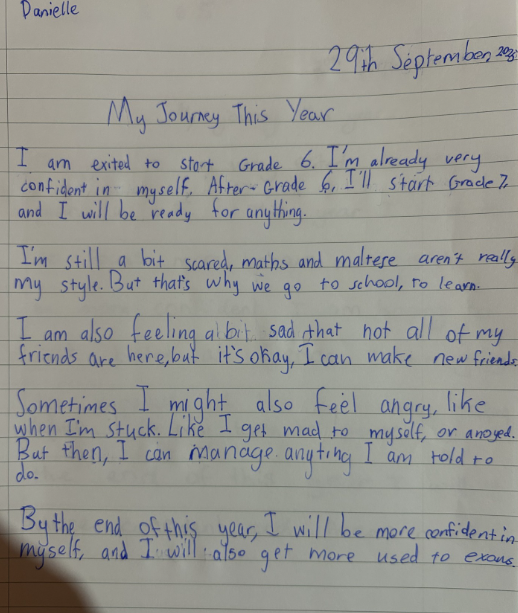 Danielle
29th September 2025
My Journey This Year
I am exited to start Grade 6. I'm already very
confident in myself. After Grade 6, I'll start Grade 7,
and I will be ready for anything.
I'm still a bit scared, maths and maltese aren't really
my style. But that's why we go to school, to learn.
I am also feeling a bit sad that not all of my
friends are here, but it's okay, I can make new friends.
Sometimes I might also feel angry, like
when I'm stuck. Like I get mad to myself, or anoyed.
But then, I can manage anyting I am told to
do.
By the end of this year, I will be more confident in
myself, and I will also get more used to exams.